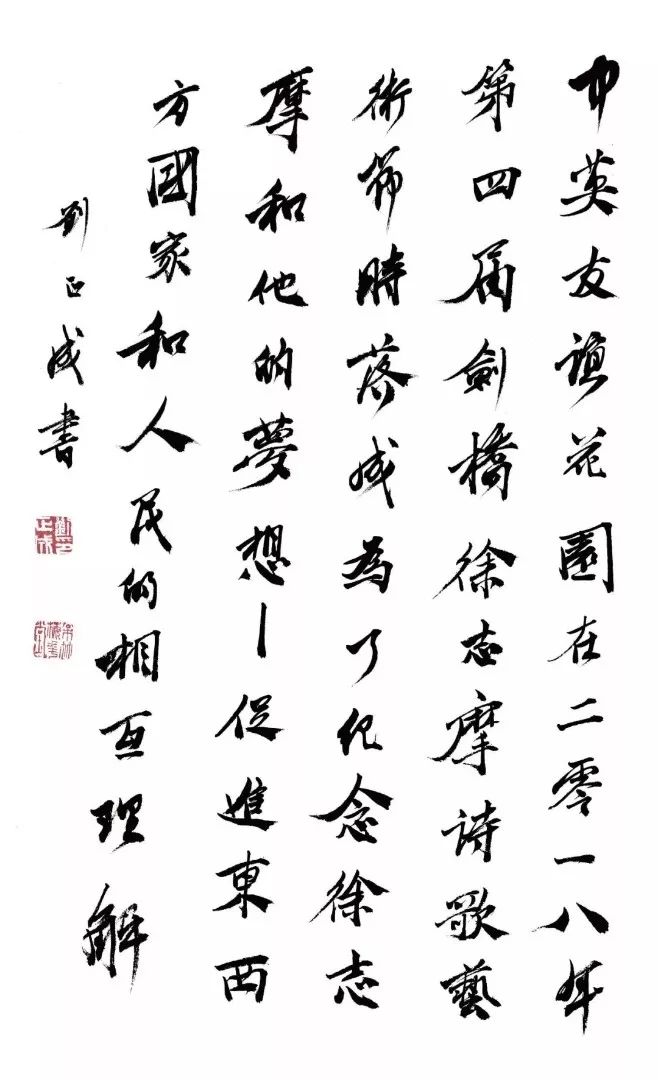 中英友誼花園在二零一八年
第四届劍橋徐志摩詩歌藝
術節時落成為了纪念徐志
摩和他的夢想—促進東西
方國家和人民的相互理解
劉正成書